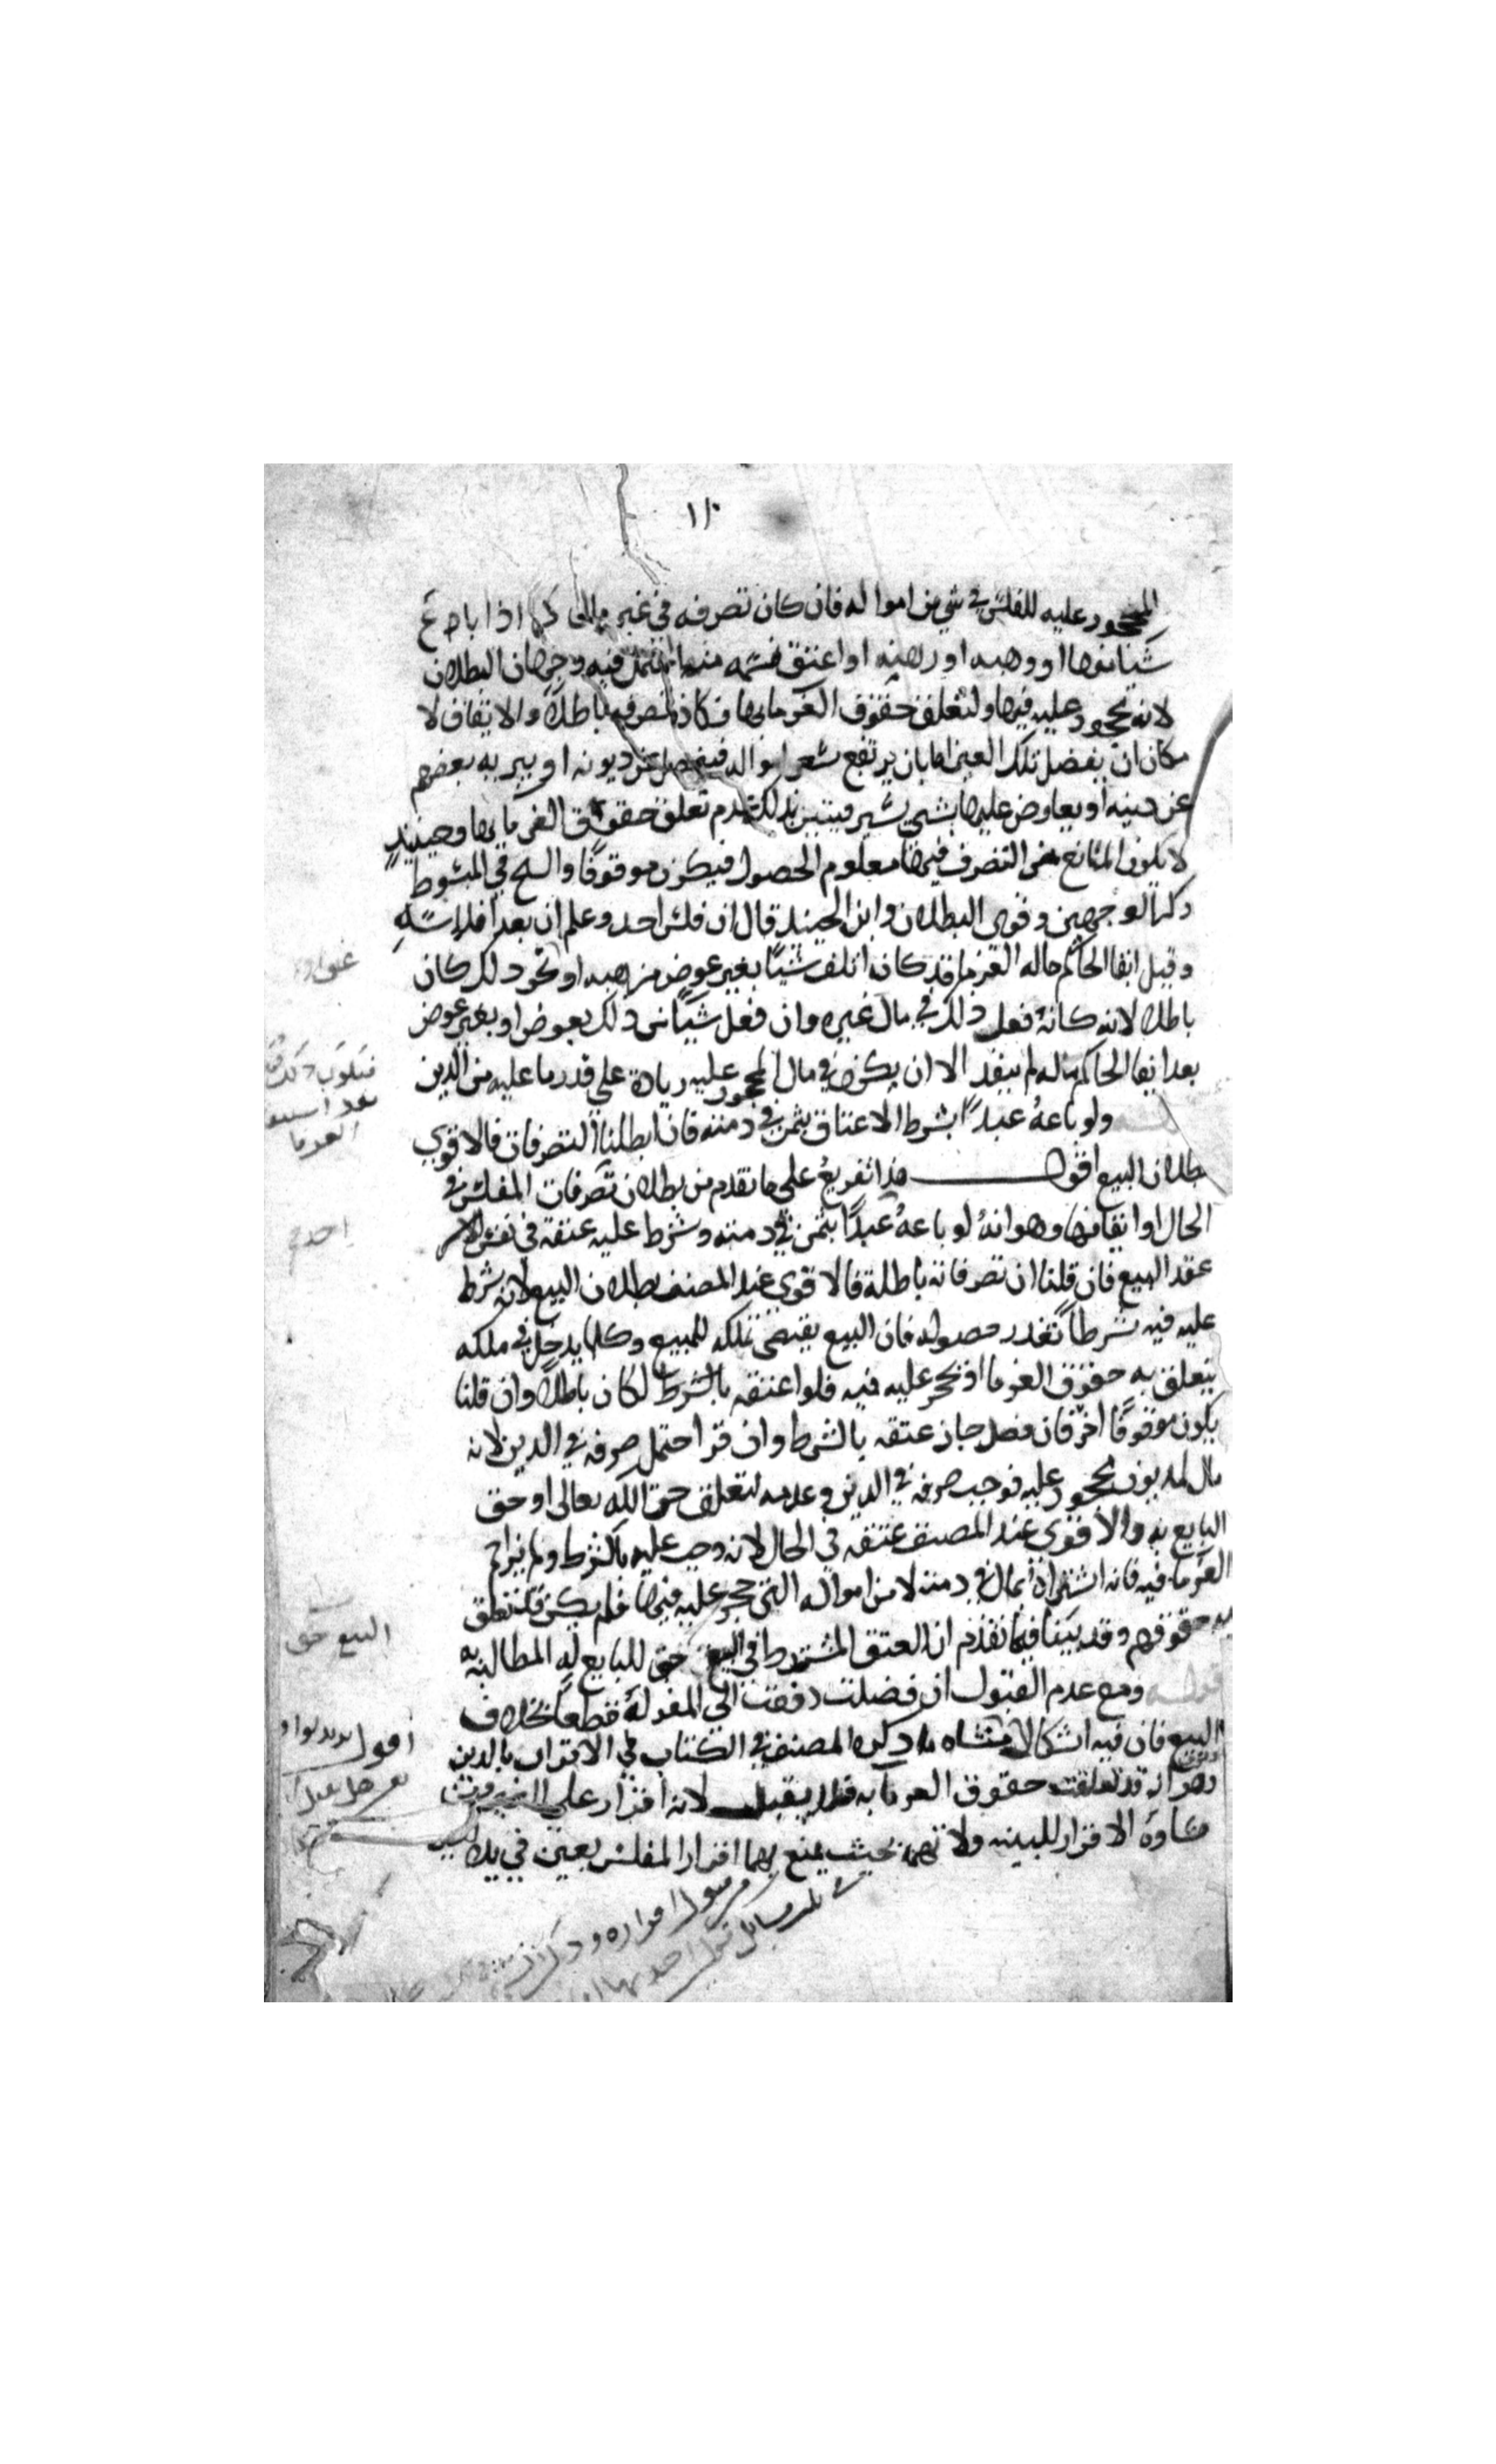 ١١٠
المحجور عليه للفلس في شي من امواله فان كان تصرفه في غير مالى كما اذا باع
شيا منها او وهبه او رهنه او اعتق نسمه منها احتمل فيه وجهان البطلان
لانه محجور عليه فيها ولتعلق حقوق الغرما بها فكان تصرفه باطلا والايقاف لا
مكان ان يفضل تلك العين اما بان يرتفع سعر امواله فيفضل عن ديونه او يبريه بعضهم
عن دينه او يعاوض عليها بشي يسير فيتبين بذلك عدم تعلق حقوق الغرما بها وحينيذ
لا يكون المانع من التصرف فيها معلوم الحصول فيكون موقوفا والشيخ في المبسوط
ذكر الوجهين وقوى البطلان وابن الجنيد قال ان فلس احد وعلم ان بعد افلاسه
وقبل ايقا الحاكم ماله الغرما قد كان اتلف شيا بغير عوض من هبه او نحو ذلك كان
باطلا لانه كانه فعل ذلك في مال غيره وان فعل شيا من ذلك بعوض او بغير عوض
بعد ايقا الحاكم ماله لم ينفذ الا ان يكون في مال المحجور عليه زيادة على قدر ما عليه من الدين
ولو باعه عبدا بشرط الاعتاق بثمن في ذمته فان ابطلنا التصرفات فالاقوى
بطلان البيع اقول هذا تفريع على ما تقدم من بطلان تصرفات المفلس في
الحال او ايقافها وهو انه لو باعه عبدا بثمن في ذمته وشرط عليه عتقه في نفس الامر
عقد البيع فان قلنا ان تصرفاته باطلة فالاقوى عند المصنف بطلان البيع لانه شرط
عليه فيه شرطا تعذر حصوله فان البيع يقتضي تملكه للمبيع وكلما يدخل في ملكه
يتعلق به حقوق الغرما اذ يحجر عليه فيه فلو اعتقه بالشرط لكان باطلا وان قلنا
يكون موقوفا اخر فان فضل جاز عتقه بالشرط وان قرا احتمل صرفه في الدين لانه
مال لمديون محجور عليه فوجب صرفه في الدين وعدمه لتعلق حق الله تعالى او حق
البايع به والاقوى عند المصنف عتقه في الحال لانه وجب عليه بالشرط ولم يزاحم
الغرما فيه فانه اشتراه بمال في ذمته لا من امواله التي حجر عليه فيها فلم يكن قد تعلق
به حقوقهم وقد بينا فيما تقدم ان العتق المشترط في البيع حق للبايع له المطالبة به
قوله ومع عدم القبول ان فضلت دفعت الى المقر له قطعا بخلاف
البيع فان فيه اشكالا منشاه ما ذكره المصنف في الكتاب في الاقرار بالدين
وهو ان قد تعلقت حقوق الغرما به فلا يقبل لانه اقرار على الغير ومن
مساوة الاقرار للبينه ولا تهمة بحيث يمنع بهما اقرار المفلس بعين في يده
البيع حق
اقول